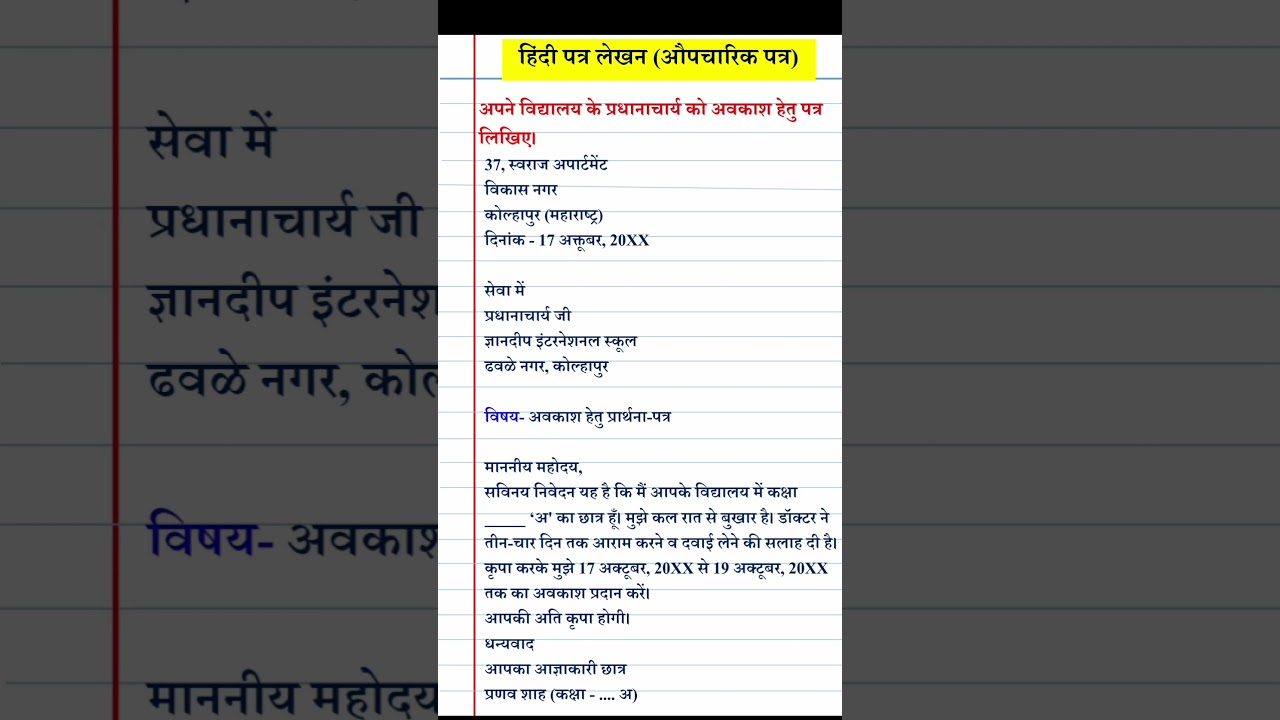 हिंदी पत्र लेखन (औपचारिक पत्र)
अपने विद्यालय के प्रधानाचार्य को अवकाश हेतु पत्र
लिखिए।
37, स्वराज अपार्टमेंट
विकास नगर
कोल्हापुर (महाराष्ट्र)
दिनांक - 17 अक्तूबर, 20XX
सेवा में
प्रधानाचार्य जी
ज्ञानदीप इंटरनेशनल स्कूल
ढवळे नगर, कोल्हापुर
विषय- अवकाश हेतु प्रार्थना-पत्र
माननीय महोदय,
सविनय निवेदन यह है कि मैं आपके विद्यालय में कक्षा
_____ ‘अ' का छात्र हूँ। मुझे कल रात से बुखार है। डॉक्टर ने
तीन-चार दिन तक आराम करने व दवाई लेने की सलाह दी है।
कृपा करके मुझे 17 अक्टूबर, 20XX से 19 अक्टूबर, 20XX
तक का अवकाश प्रदान करें।
आपकी अति कृपा होगी।
धन्यवाद
आपका आज्ञाकारी छात्र
प्रणव शाह (कक्षा - .... अ)
सेवा में
प्रधानाचार्य जी
ज्ञानदीप इंटरनेश
ढवळे नगर, को
विषय- अवकाश
माननीय महोदय